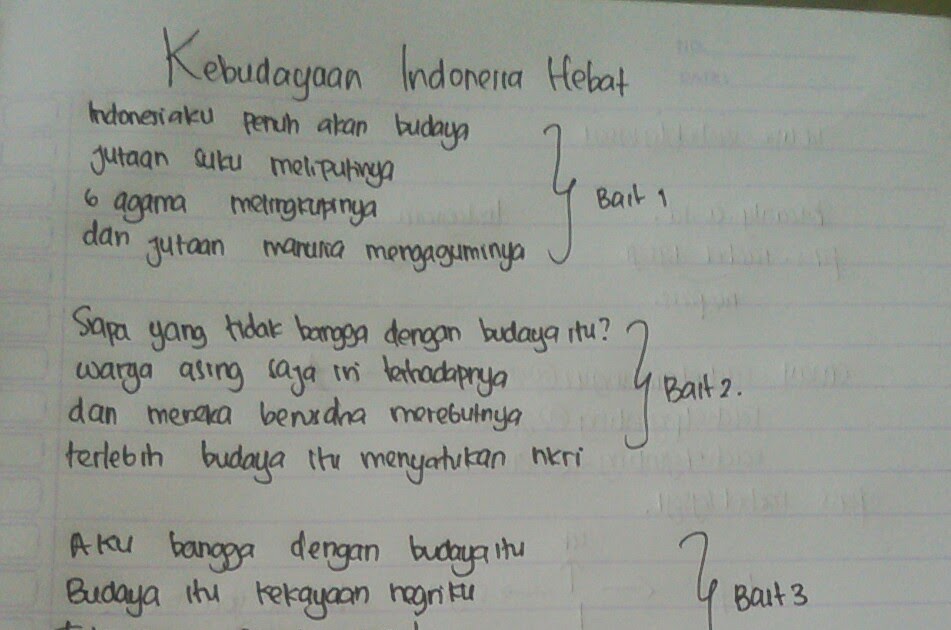 Kebudayaan Indonesia Hebat
Indonesiaku penuh akan budaya
jutaan suku meliputinya
6 agama melingkupinya
dan jutaan manusia mengaguminya
Bait 1
Siapa yang tidak bangga dengan budaya itu?
warga asing saja iri terhadapnya
dan mereka berusaha merebutnya
terlebih budaya itu menyatukan nkri
Bait 2.
Aku bangga dengan budaya itu
Budaya itu kekayaan negriku
Bait 3